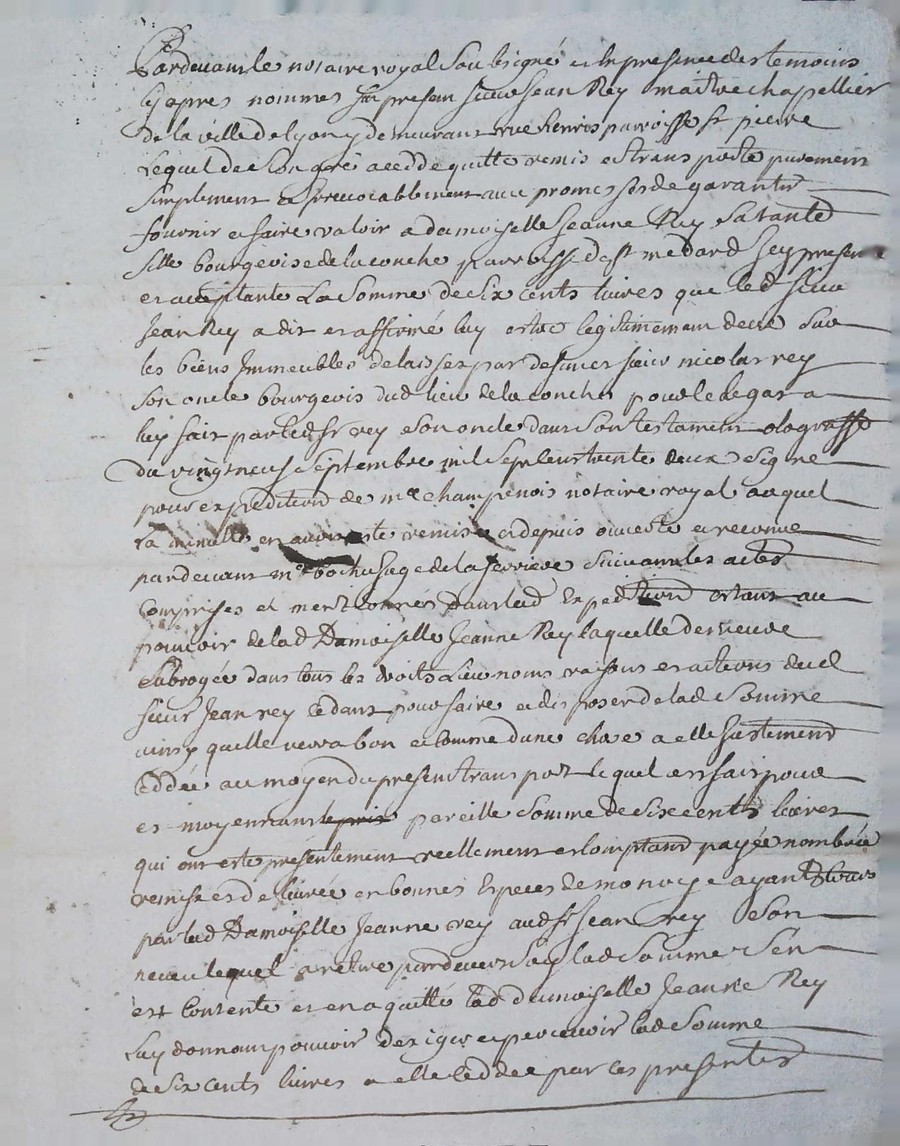 Pardevant le notaire royal soubsigné et In presence des temoins
cy apres nommes fut presen sieur Jean Rey maitre chapellier
de la ville de lyon y demeurant rue paroisse st pierre
Lequel de son gré a cedde quitte remis et transporte purement
simplement et Irrevocablement avec promesses de garantir
fournir et faire valoir a damoiselle Jeanne Rey sa tante
fille bourgeoise de la conche parroisse de st medard Icy presente
et acceptante La somme de six cents livres que led sieur
Jean Rey a dit et affirmé luy estre legitimement deue sur
les biens Immeubles delaisses par defunct sieur nicolas rey
son oncle bourgeois dud lieu de la conche pour le legat a
luy fait par led sr rey son oncle dans son testament olografse
du vingt neuf septembre mil sept cens trente deux signe
pour expedition de me champenois notaire royal auquel
la minutte en auroit este remise et depuis ouverte et reconue
pardevant mr bochu Juge de la ferriere suivant les actes
comprises et mentionnes dans lad expedition estant au
pouvoir de lad Damoiselle Jeanne Rey laquelle demeure
subrogée dans tous les droits lieu noms raisons et actions dud
sieur Jean rey cedant pour faire et disposer de lad somme
ainsy quelle verra bon et comme dune chose a elle justement
ceddée au moyen du present transport lequel est fait pour
et moyennant le prix pareille somme de six cents livres
qui ont este presentement reellement et comptant payée nombrée
remise et delivrée en bonnes Especes de monoye ayant cours
par lad Damoiselle Jeanne rey aud sr Jean rey son
neveu lequel a retire pardevers soy lad somme sen
est contente et en a quitté lad damoiselle Jeanne Rey
Luy donnant pouvoir dexiger et percevoir lad somme
de six cents livres a elle ceddée par ces presentes